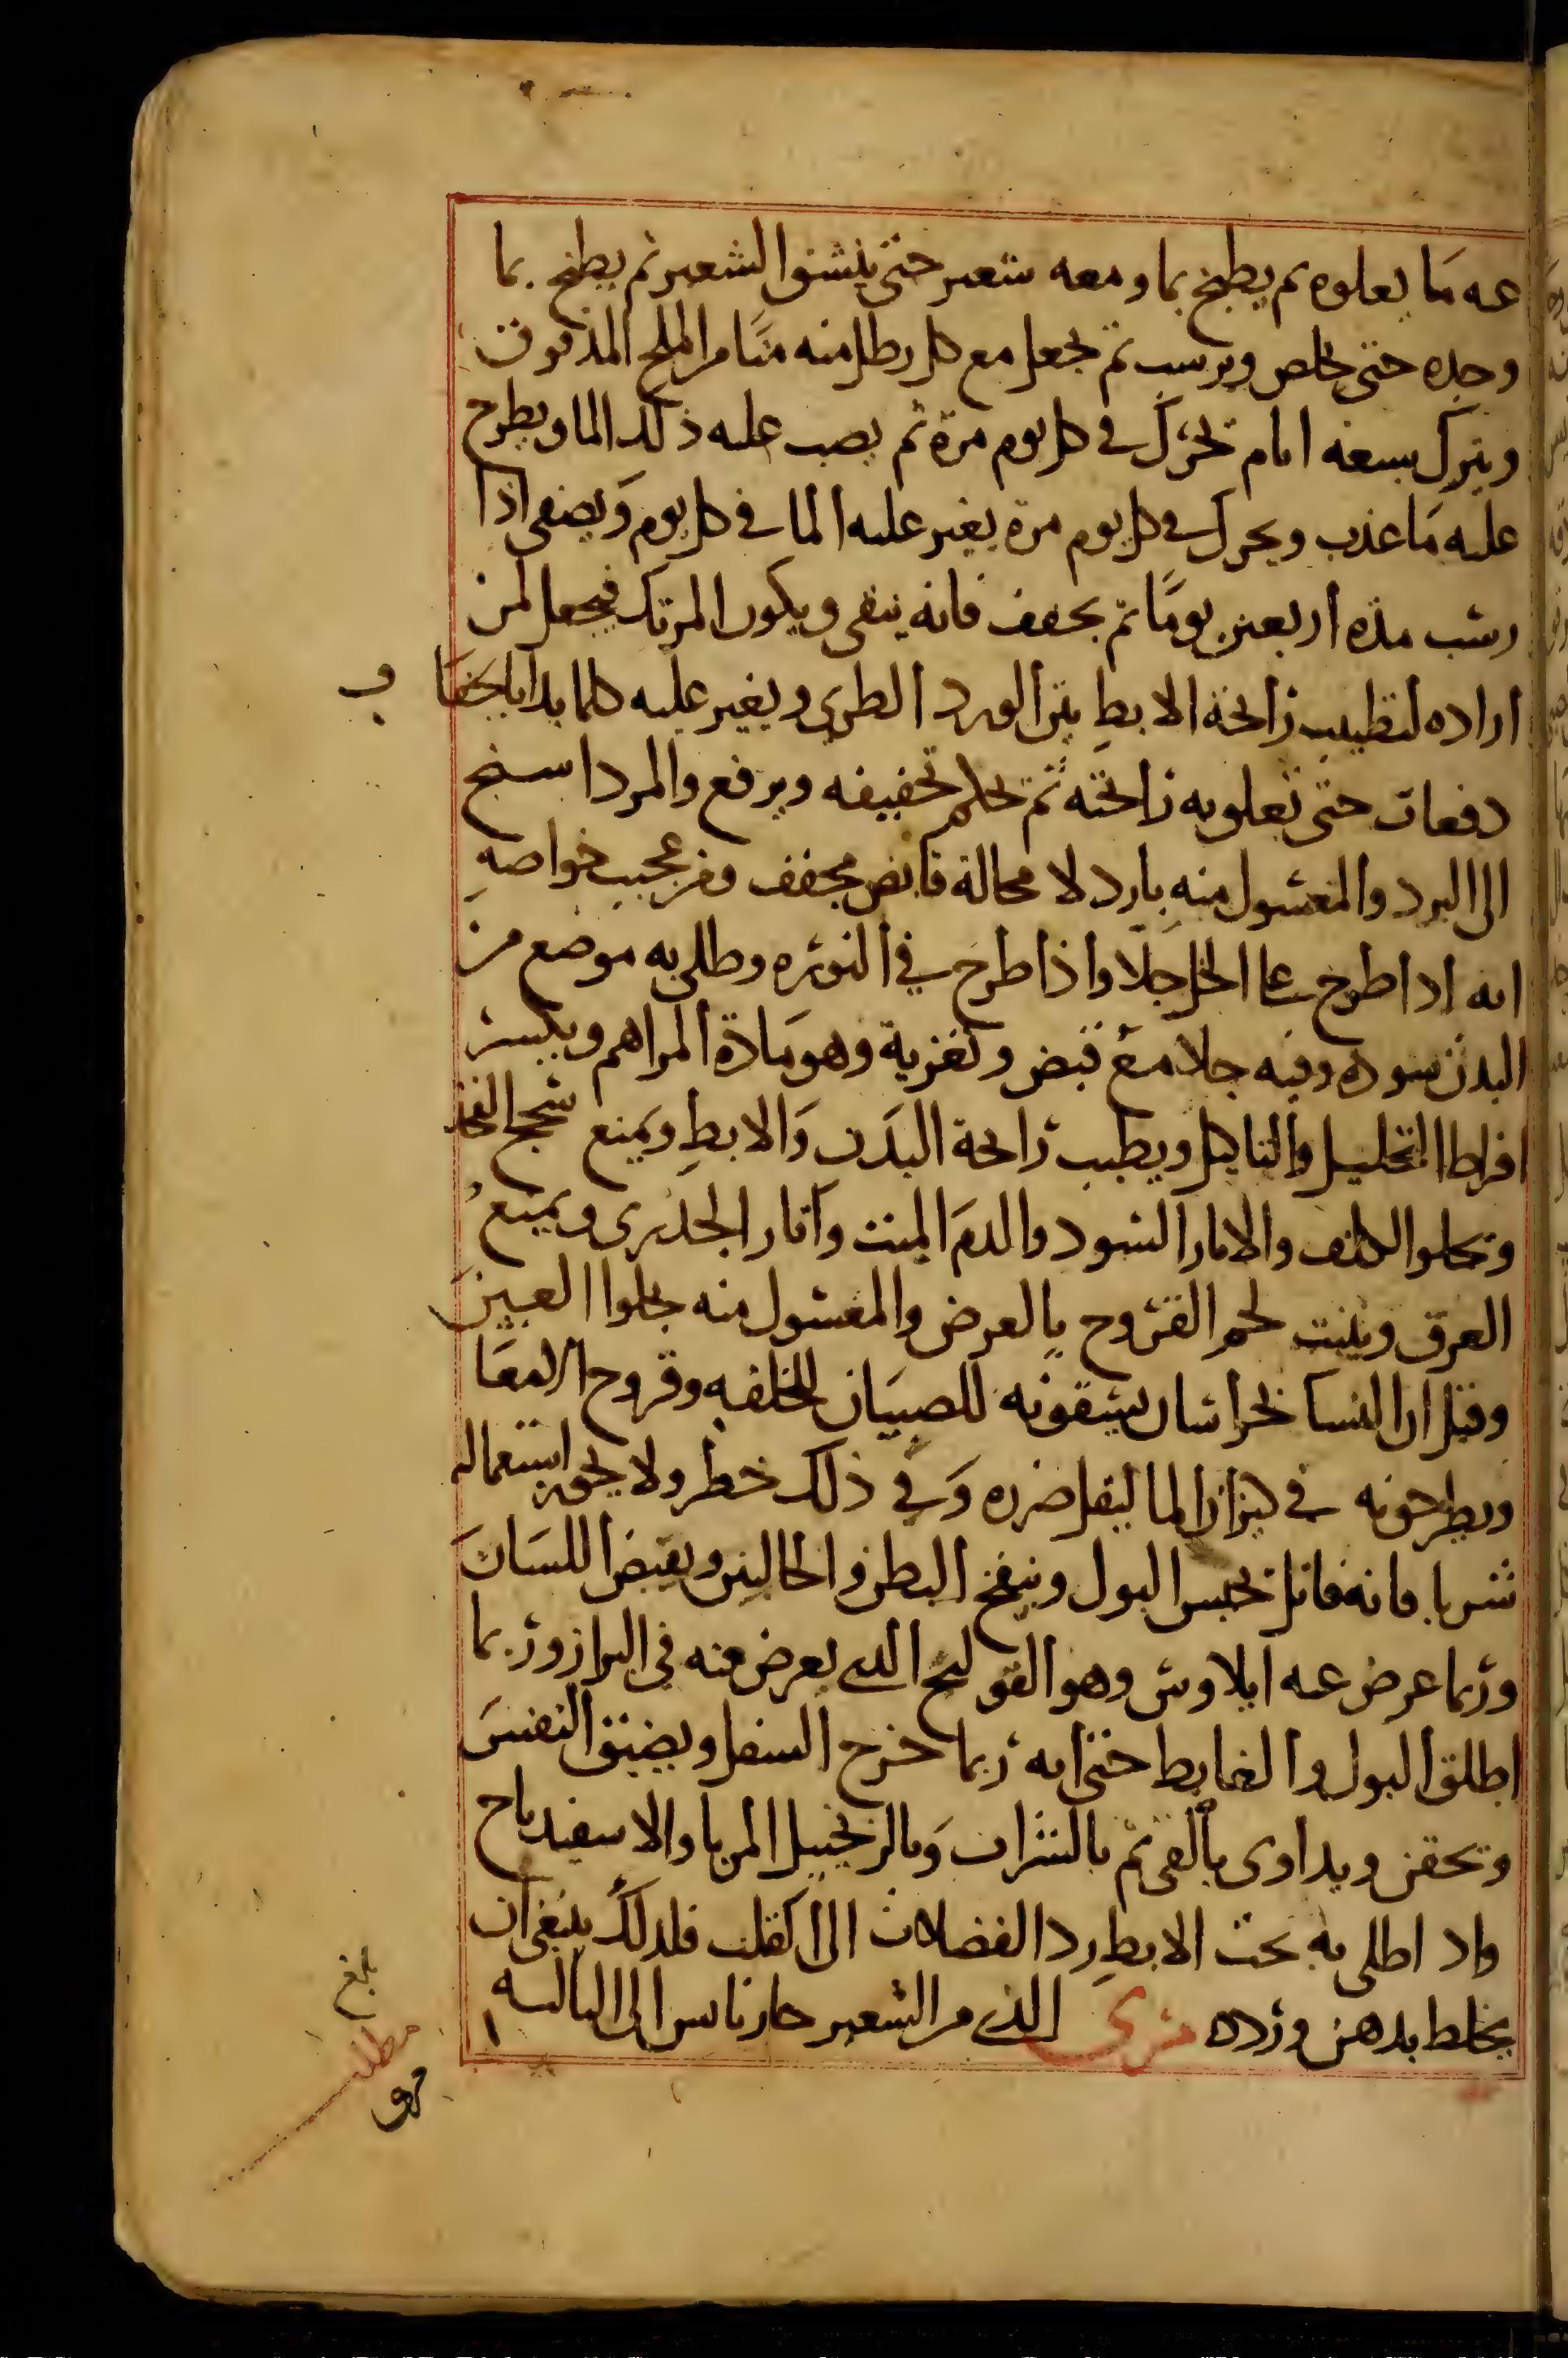 عنه ما يعلوه ثم يطبخ بما ومعه شعير حتى ينشف الشعير ثم يطبخ بما
وحده حتى يخلص ويرسب ثم يجعل مع كل رطل منه منًا من الملح المدقوق
ويترك سبعة ايام يحرّك في كل يوم مرة ثم يصب عليه ذلك الما ويطرح
عليه مَا عذب ويحرك في كل يوم مرة يغير عليه الما في كل يوم وَيصفى اذا
رسب مدة أربعين يومًا ثم يجفف فانه ينقى ويكون المرتك فيجعل لمن
اراده لتطييب رائحة الابطِ بين الورد الطري ويغير عليه كلما بدا بالجفا ف
دفعات حتى تعلو به رائحته ثم يحكم تحفيفه ويرفع والمرداسنج
الى البرد والمغسول منهِ باِرد لا محالة قابض مجفف ومن عجيب خواصهِ
انه اذا طرح على الخل حلّا واذا طرحَ في النوره وطلى به موضع من
البدن سوده وفيه جلا معَ قبض وتغرية وهو مَادة المراهم ويكسر
افراط التحليل والتاكيل ويطيب رائحة البدَن وَالابطِ ويمنع سحج الفخذ
ويجلوا الكلف والاثار السود والدمَ الميت وآثار الجدرى ويمنعُ
العرق وينبت لحم القروح باِلعرض والمغسول منه يجلوا العينَ
وقيل ان النسا بخراسان يسقونه للصبيَان للخلفه وقروح الامعَا
ويطرحونه في كيزان الما ليقل ضرره وَفي ذلك خطر ولا يجوز استعماله
شربا فانه قاتل يحبس البول وينفخ البطن والحالبين ويقبض اللسَانَ
وربما عرض عنه ايلاوس وهو القولنج الذى يعرض منه في البراز وربما
اطلق البول والغايط حتى انه ربما خرج السفل ويضيق النفسَ
ويحقن ويداوى بالقى ثم بالشراب وَبالزنجبيل المربا والاسفيدباج
واذا طلى به تحت الابطِ رد الفضلات الى القلب فلذلك ينبغى ان
يخلط بدهن ورده مرى الذى من الشعير حار يابس الى الثالثه
بلغ
مطلب
مرى